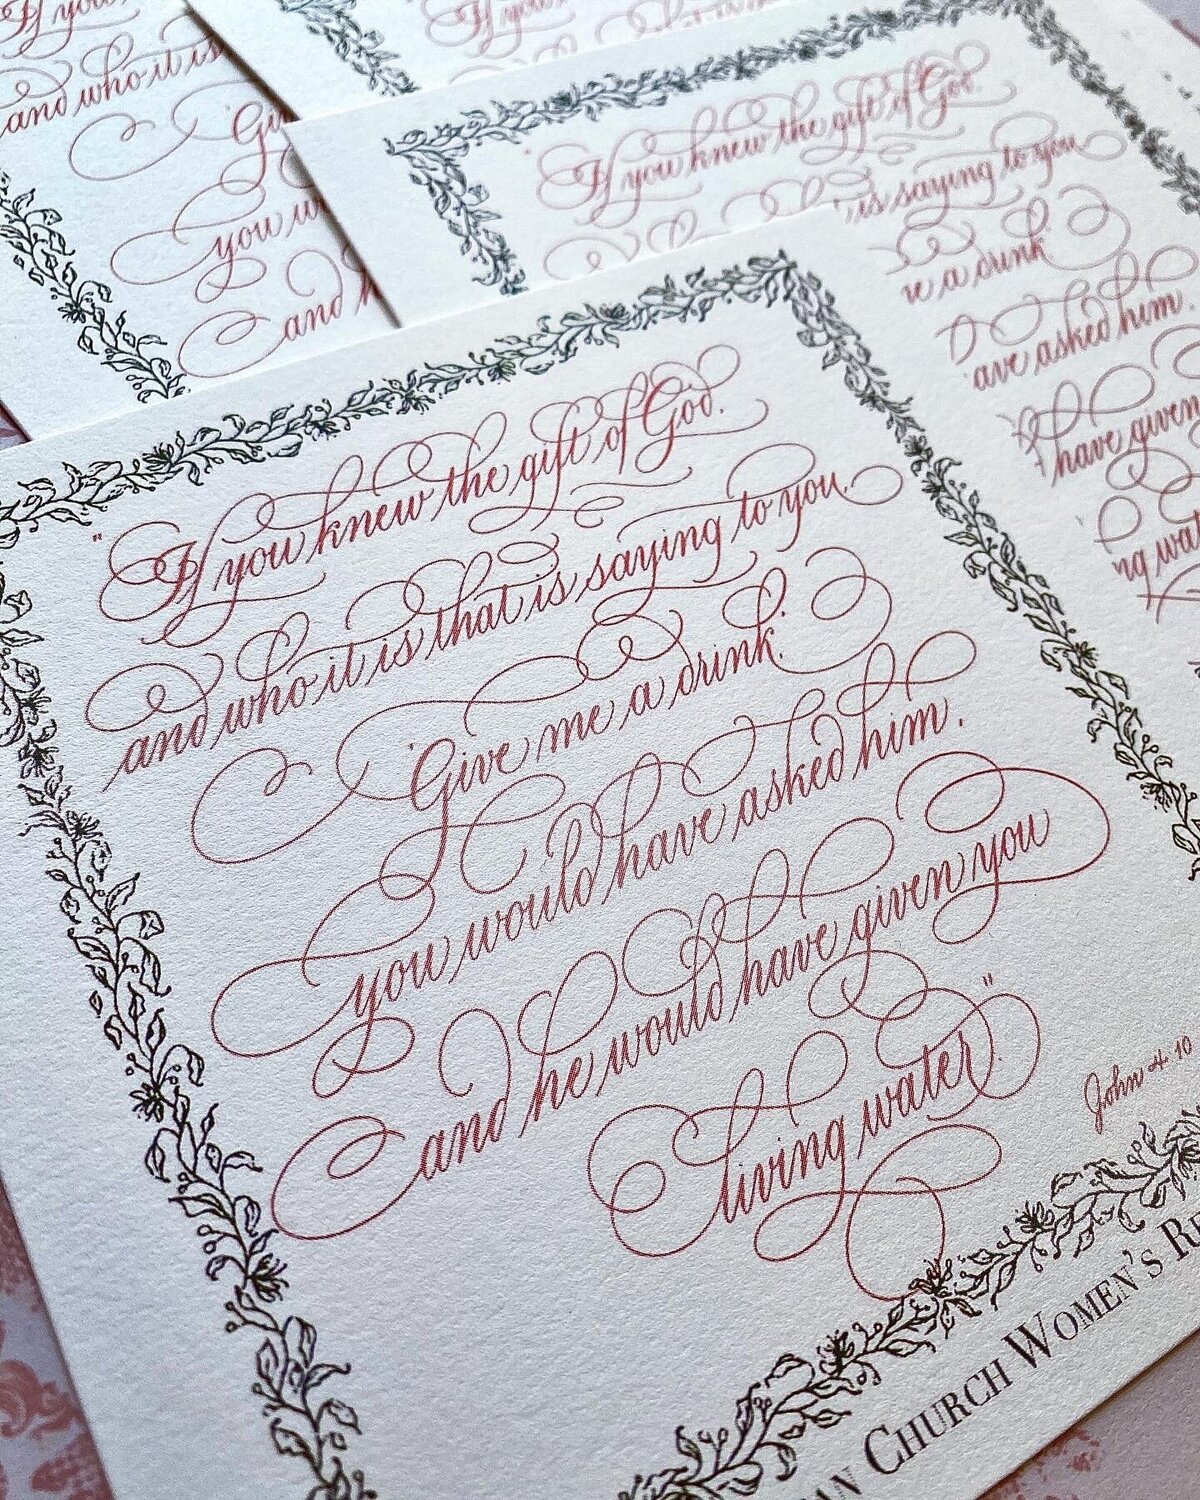 "If you knew the gift of God,
and who it is that is saying to you,
'Give me a drink,'
you would have asked him,
and he would have given you
living water."
John 4:10
Church Women's
If you
and who it is
'Giv
you w
and h
"If you knew the gift of God,
is saying to you
e a drink,'
ave asked him,
have given
ng wat